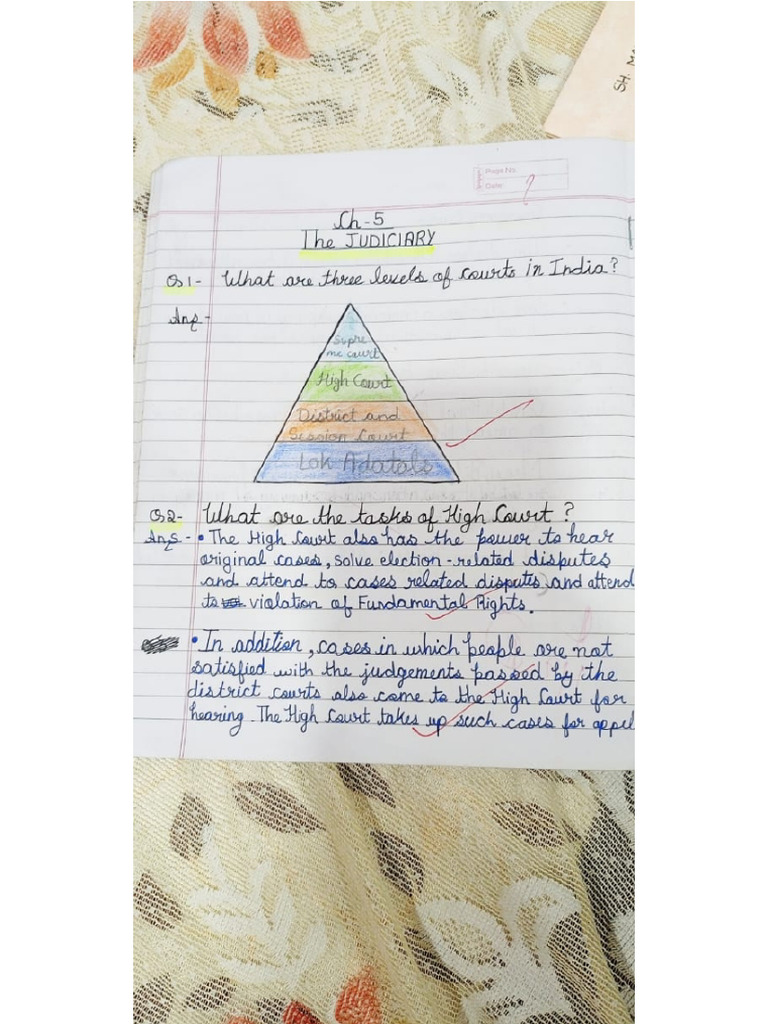 Page No.
Date:
Ch-5
The JUDICIARY
Qs 1- What are three levels of courts in India?
Ans -
Supre
me court
High Court
District and
Session Court
Lok Adatals
Qs 2- What are the tasks of High Court?
Ans - • The High Court also has the power to hear
original cases, solve election-related disputes
and attend to cases related disputes and attend
to violation of Fundamental Rights.
• In addition, cases in which people are not
satisfied with the judgements passed by the
district courts also come to the High Court for
hearing. The High Court takes up such cases for appel